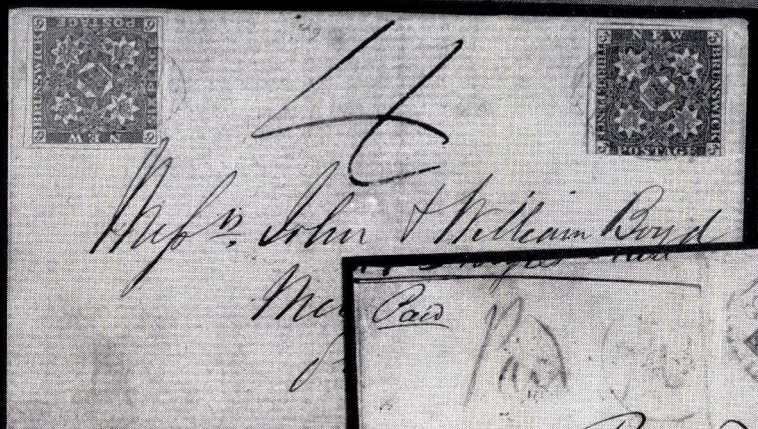 NEW BRUNSWICK POSTAGE SIX PENCE
4
NEW BRUNSWICK POSTAGE
Messrs. John & William Boyd
Paid
Paid